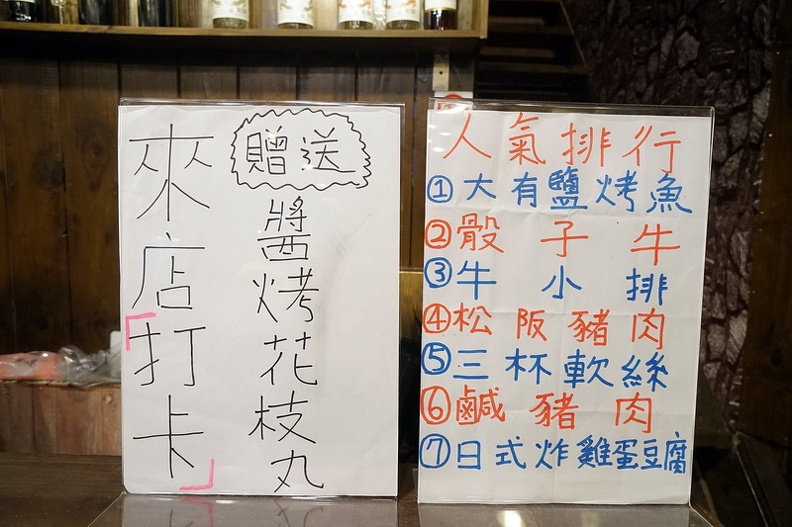 來店「打卡」
贈送
醬烤花枝丸
人氣排行
①大有鹽烤魚
②骰子牛
③牛小排
④松阪豬肉
⑤三杯軟絲
⑥鹹豬肉
⑦日式炸雞蛋豆腐